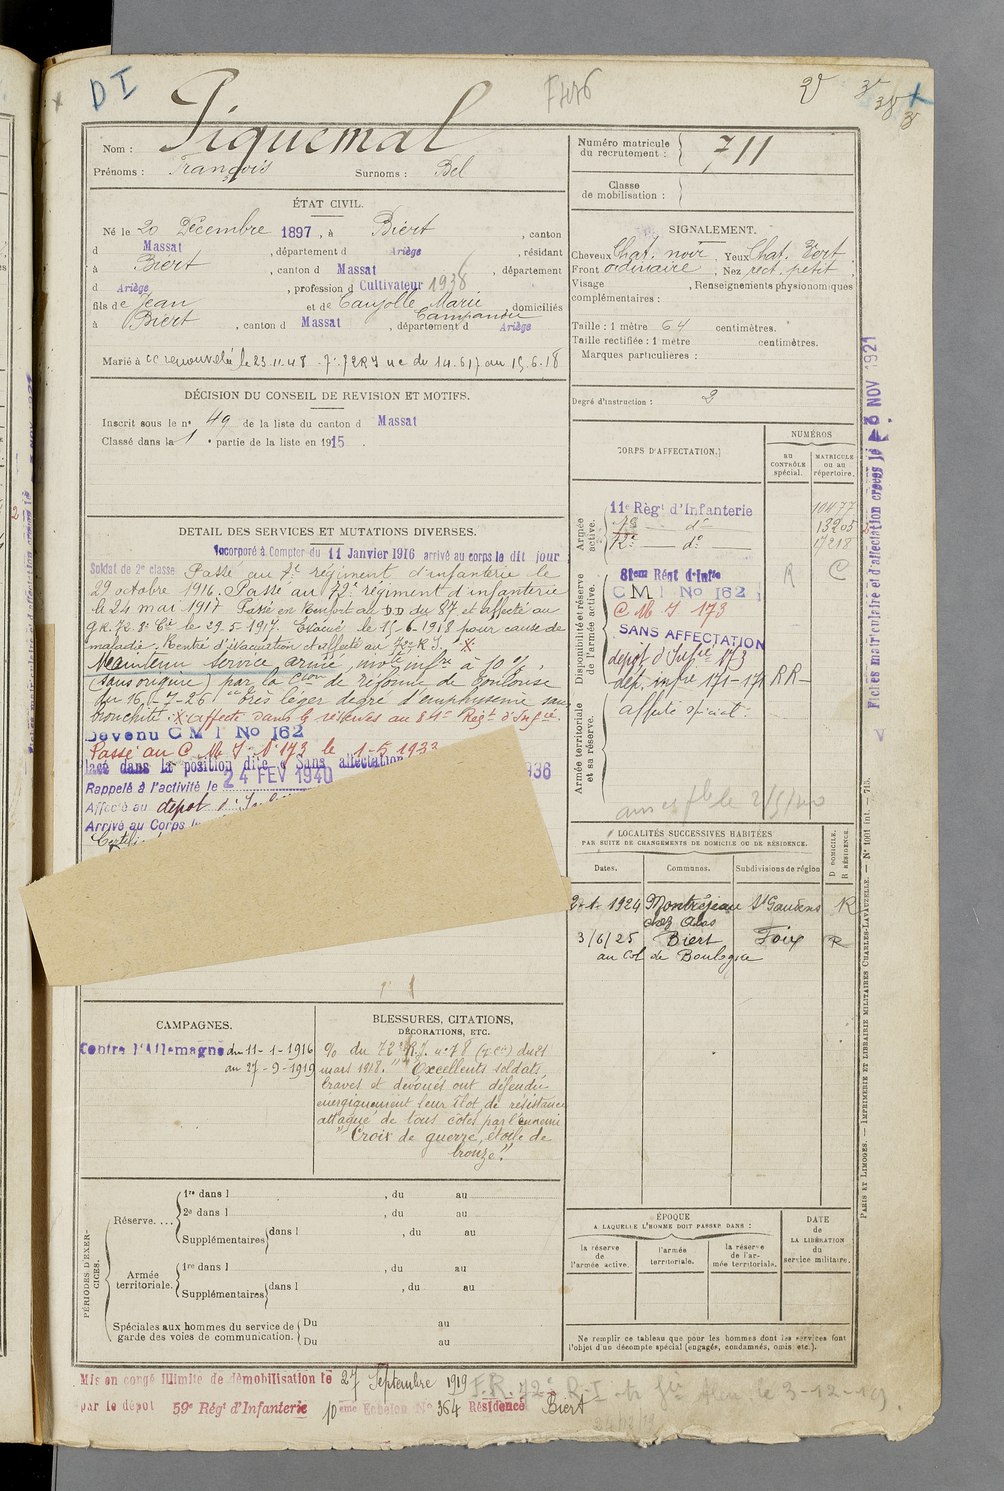 DI
F446
Nom : Piquemal
Prénoms : François Surnoms : Bel
Numéro matricule du recrutement : 711
Classe de mobilisation :
ÉTAT CIVIL.
Né le 20 Décembre 1897, à Biert, canton
d Massat, département d Ariège, résidant
à Biert, canton d Massat, département
d Ariège, profession d Cultivateur 1938
fils de Jean et de Caujolle Marie Campandu, domiciliés
à Biert, canton d Massat, département d Ariège
Marié à
DÉCISION DU CONSEIL DE REVISION ET MOTIFS.
Inscrit sous le n° 49 de la liste du canton d Massat
Classé dans la 1 e partie de la liste en 1915.
DETAIL DES SERVICES ET MUTATIONS DIVERSES.
Incorporé à Compter du 11 Janvier 1916 arrivé au corps le dit jour
Soldat de 2e classe. Passé au 7e régiment d'infanterie le
29 octobre 1916. Passé au 72e régiment d'infanterie
le 24 mai 1917 Passé en Renfort au DD du 87 et affecté au
9 R.72.8e Cie le 29-5-1917. Evacué le 15-6-1918 pour cause de
maladie. Rentré d'évacuation et affecté au 72e R.I. X
Maintenu service armé, inv^té inf^re à 10 %,
(sans origine) par la C^ion de réforme de Toulouse
du 16-7-26 très léger degré d'emphysème sans
bronchite. X Affecté dans les réserves au 81e Régt d'Inf^ie.
Devenu C M I No 162
Passé au C M I N° 173 le 1-5-1933
lacé dans la position dite « Sans affectation 936
Rappelé à l'activité le 24 FEV 1940
Affecté au dépot d'
Arrivé au Corps l
CAMPAGNES.
Contre l'Allemagne du 11-1-1916
au 27-9-1919
BLESSURES, CITATIONS,
DÉCORATIONS, ETC.
% du 72e R.I. n° 78 du 21
mars 1918. "Excellents soldats,
braves et dévoués ont défendu
énergiquement leur îlot de résistance
attaqué de tous côtés par l'ennemi
"Croix de guerre, étoile de
bronze."
PÉRIODES D'EXERCICES.
Réserve....
1re dans l , du au
2e dans l , du au
Supplémentaires dans l , du au
Armée territoriale.
1re dans l , du au
Supplémentaires dans l , du au
Spéciales aux hommes du service de garde des voies de communication.
Du au
Du au
Mis en congé illimité de démobilisation le 27 Septembre 1919
par le dépôt 59e Régt d'Infanterie 10 eme Echelon No 364 Résidence Biert
SIGNALEMENT.
Cheveux Chat. noir, Yeux Chat. Vert
Front ordinaire, Nez rect. petit
Visage , Renseignements physionomiques
complémentaires :
Taille : 1 mètre 64 centimètres.
Taille rectifiée : 1 mètre centimètres.
Marques particulières :
Degré d'instruction : 2
CORPS D'AFFECTATION.
NUMÉROS
AU CONTRÔLE spécial.
MATRICULE OU AU répertoire.
Armée active.
11e Régt d'Infanterie 10477
d° 13205
72e d° 17218
Disponibilité et réserve de l'armée active.
81em Régt d'Infie R C
C M I No 162
C M I 173
SANS AFFECTATION
dépot d'Infie 173
dép. infie 171-171 RR-
affecté spécial.
Armée territoriale et sa réserve.
LOCALITÉS SUCCESSIVES HABITÉES
PAR SUITE DE CHANGEMENTS DE DOMICILE OU DE RÉSIDENCE.
D DOMICILE. R RÉSIDENCE.
Dates. Communes. Subdivisions de région
2-1-1924 Montréjeau St Gaudens R
chez Abas
3/6/25 Biert Foix R
au Col de Boulogne
ÉPOQUE
A LAQUELLE L'HOMME DOIT PASSER DANS :
la réserve de l'armée active.
l'armée territoriale.
la réserve de l'armée territoriale.
DATE de LA LIBÉRATION du service militaire.
Ne remplir ce tableau que pour les hommes dont les services font
l'objet d'un décompte spécial (engagés, condamnés, omis etc.).
Fiches matriculaire et d'affectation créées le 3 NOV 1921
PARIS ET LIMOGES. — IMPRIMERIE ET LIBRAIRIE MILITAIRES CHARLES-LAVAUZELLE. — N° 1001 int. — 715.